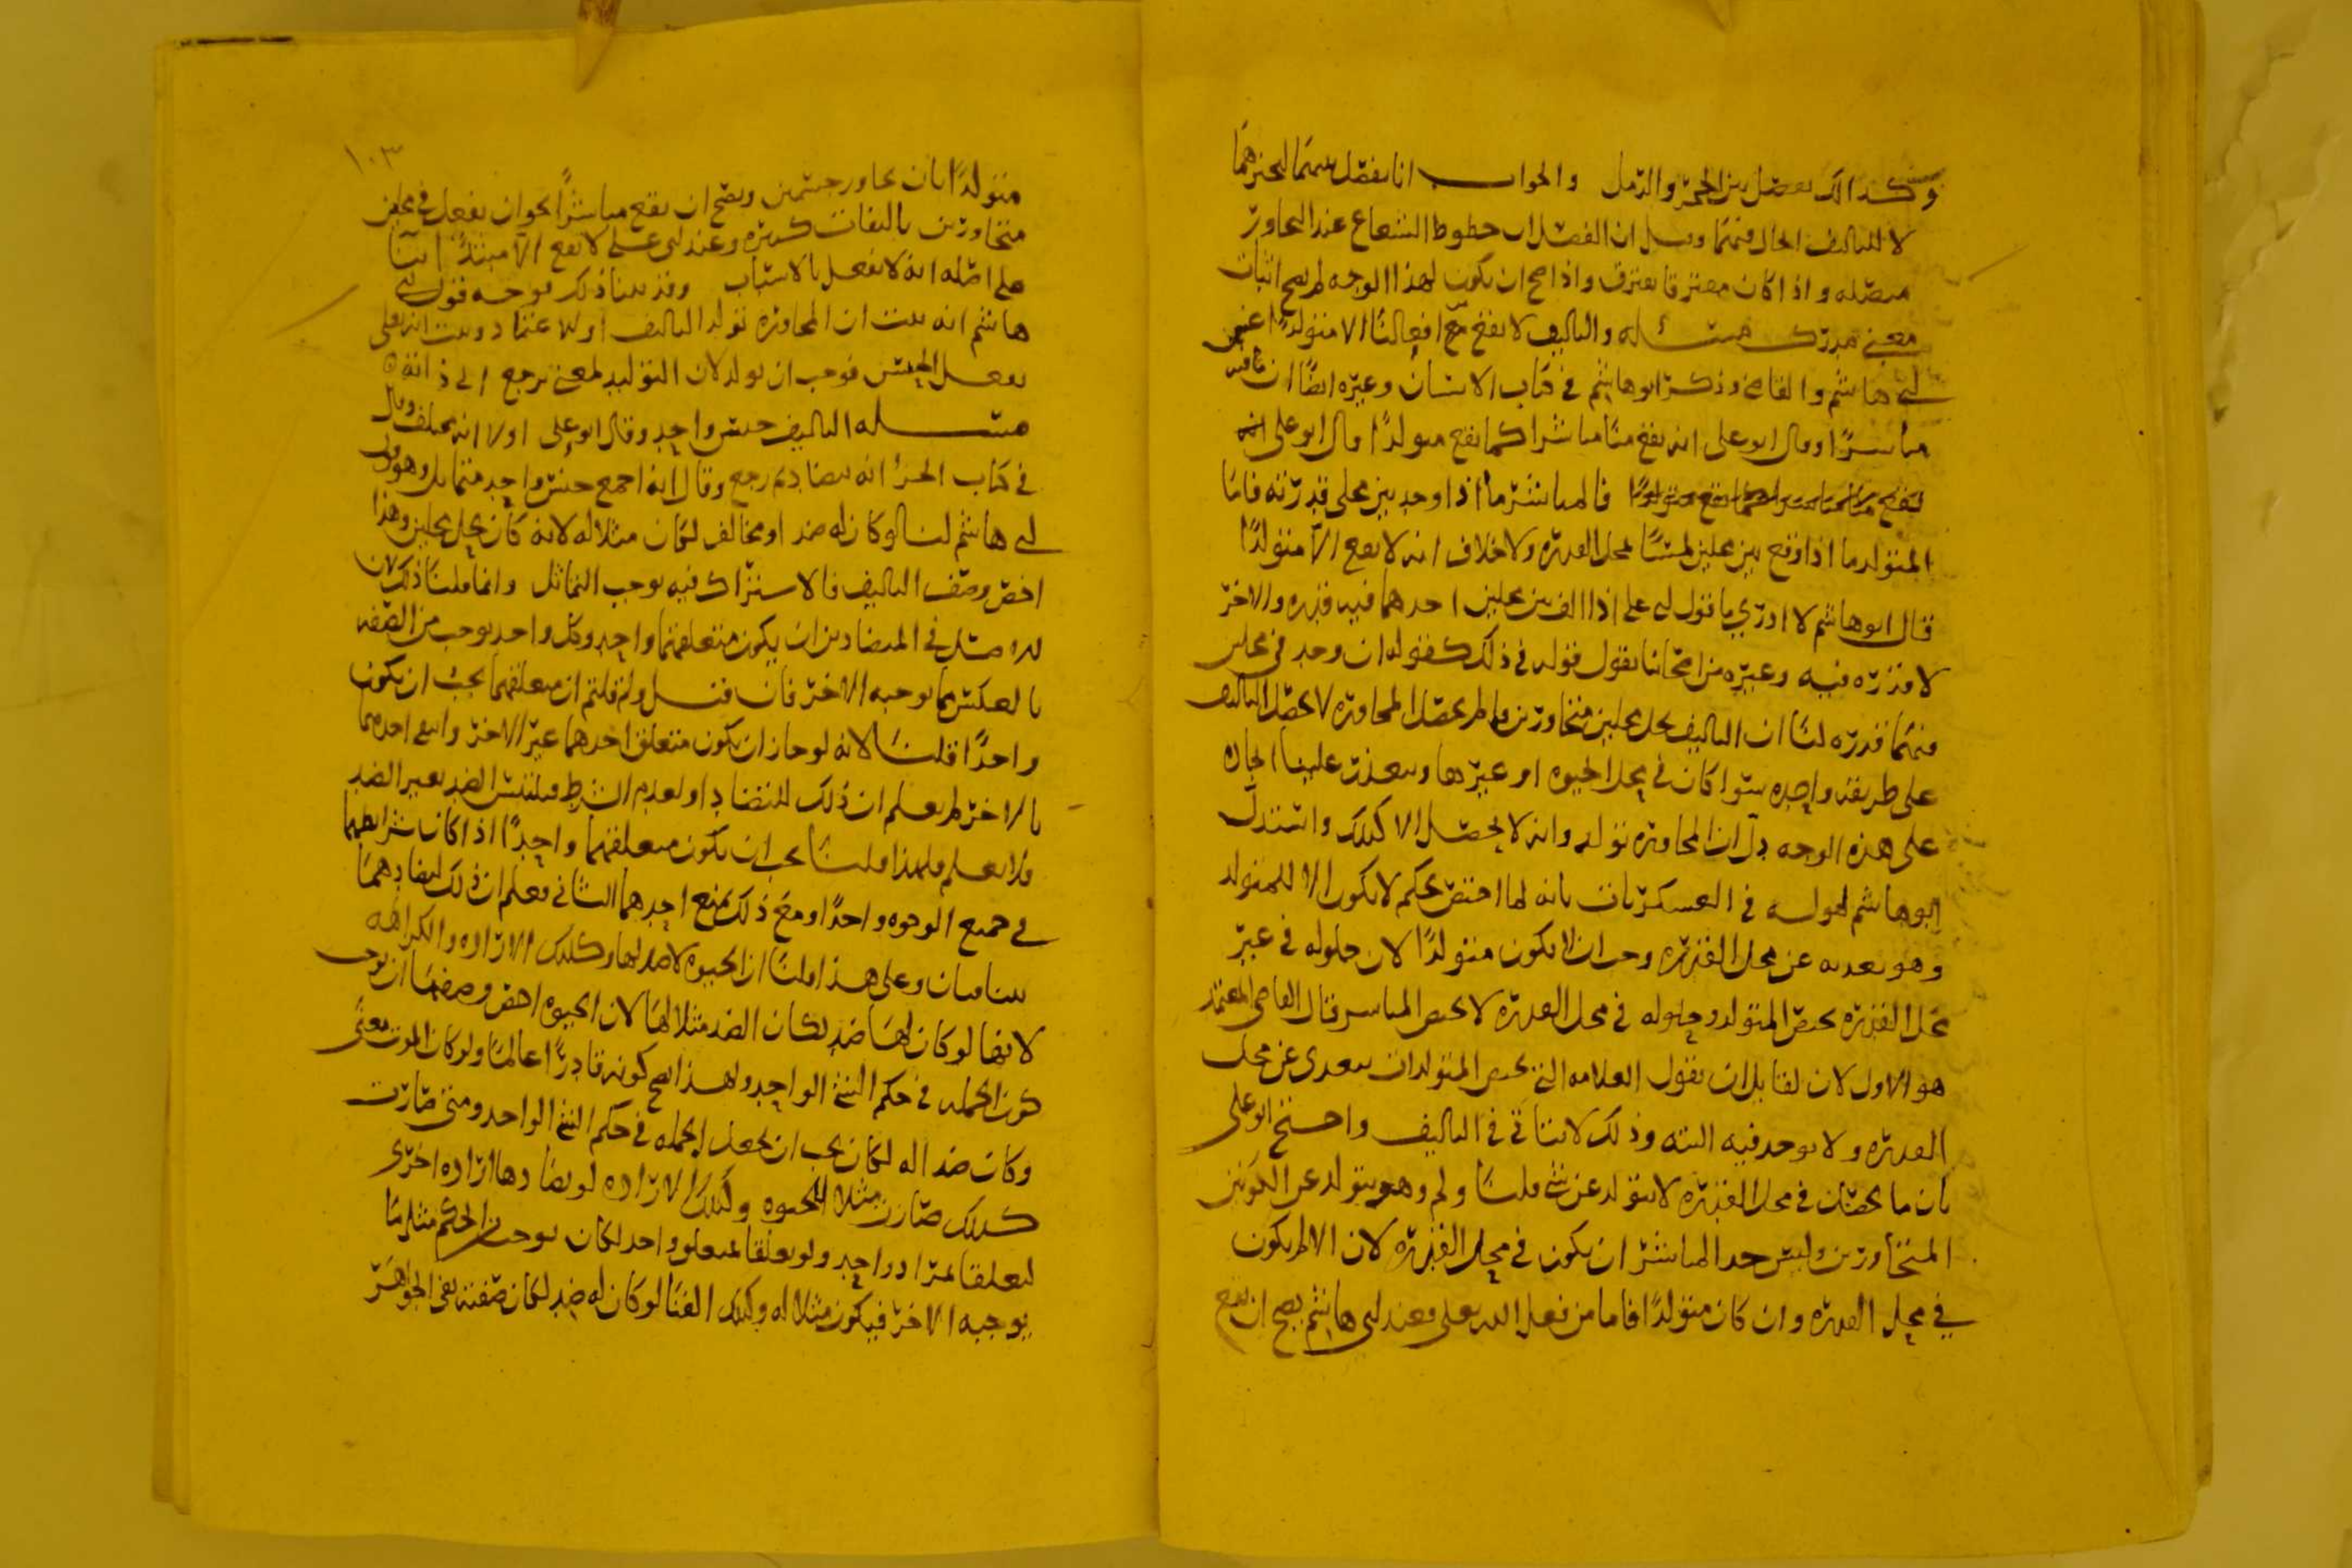 وكذلك نفصل بين الحجر والرمل والجواب انا نفصل بينهما لتحيزهما
لا للتاليف الحال فيهما وقيل ان الفصل ان خطوط الشعاع عند التجاور
متصله واذا كان مفترقا تفترق واذا صح ان يكون لهذا الوجه لم يصح اثبات
معنى مدرك مسئله والتاليف لا يقع من افعالنا الا متولدًا عند
ابى هاشم والقاضى وذكر ابو هاشم في كتاب الانسان وغيره ايضًا ان فيه
مباشرًا وقال ابو على انه يقع منا مباشرا كما يقع متولدًا وقال ابو على انه
فالمباشر ما اذا وجد بين محلى قدرته فاما
المتولد ما اذا وقع بين محلين ليسا لمحل القدره ولا خلاف انه لا يقع الا متولدًا
قال ابو هاشم لا ادرى ما قول ابى على اذا الف بين محلين احدهما فيه قدره والاخر
لا قدره فيه وغيره من اصحابنا يقول قوله في ذلك كقوله ان وجد في محلين
فيهما قدره لنا ان التاليف يحل محلين متجاورين وما لم يحصل المجاوره لا يحصل التاليف
على طريقه واحده سوا كان في محل الحيوه او غيرها ويتعذر علينا ايجاده
على هذه الوجه دل ان المجاوره تولد وانه لا يحصل الا كذلك واستدل
ابو هاشم لقوله في العسكريات بانه لما اختص بحكم لا يكون الا للمتولد
وهو تعديه عن محل القدره وجب ان لا يكون متولدًا لان حلوله في غير
محل القدره يخص المتولد وحلوله في محل القدره لا يخص المباشر قال القاضى المعتمد
هو الاول لان لقايل ان يقول العلامه التي تخص المتولد ان يتعدى عن محل
القدره ولا يوجد فيه البته وذلك لا يتاتى في التاليف واحتج ابو على
بان ما يحصل في محل القدره لا يتولد عن شي قلنا ولم وهو يتولد عن الكونين
المتجاورين وليس حد المباشر ان يكون في محل القدره لان الالم يكون
في محل القدره وان كان متولدًا فاما من فعل الله تعلى فعند ابى هاشم يصح ان يقع
١٠٣
متولدًا بان يجاور جسمين ويصح ان يقع مباشرًا بحوان يفعل في محلين
متجاورين تاليفات كثيره وعند ابى على لا يقع الا مبتدأ اتيانا
على اصله انه لا يفعل بالاسباب وقد بينا ذلك توجه قول ابى
هاشم انه ثبت ان المجاوره تولد التاليف اولا عتماد وثبت انه تعلى
يفعل الجنس فوجب ان يولد لان التوليد لمعنى يرجع الى ذاته
مسئله التاليف جنس واحد وقال ابو على اولا انه مختلف وقال
في كتاب الجزء انه يتضاد ثم رجع وقال انه اجمع جنس واحد متماثل وهو قول
ابى هاشم لنا لو كان له ضد او مخالف لكان مثلا له لانه كان يحل محلين وهذا
اخص وصف التاليف فالاشتراك فيه يوجب التماثل وانما قلنا ذلك لان
في المتضادين ان يكون متعلقهما واحد وكل واحد يوجب من الصفه
بالعكس مما يوجبه الاخر فان قيل ولم قلتم ان متعلقهما يجب ان يكون
واحدًا قلنا لانه لو جاز ان يكون متعلق احدهما غير الاخر وانتفى احدهما
بالاخر لم يعلم ان ذلك للتضاد او لعدم الشرط فيلتبس الضد بغير الضد
فلا يعلم فلهذا قلنا يجب ان يكون متعلقهما واحدًا اذا كان شرايطهما
في جميع الوجوه واحدًا ومع ذلك يمنع احدهما الثانى فعلم ان ذلك لتضادهما
وعلى هذا قلنا ان الحيوه لا ضد لها وكذلك الاراده والكراهه
لانها لو كان لها ضد لكان الضد مثلا لها لان الحيوه اخص وصفها ان يوجب
كون الجمله في حكم الشي الواحد ولهذا يصح كونه قادرًا عالمًا ولو كان الموت معنى
وكان ضدا له لكان يجب ان يجعل الجمله في حكم الشي الواحد ومتى صارت
كذلك صارت مثلا للحيوه وكذلك الاراده لو يضادها اراده اخرى
لتعلقا بمراد واحد ولو تعلقا بمتعلق واحد لكان يوجب من الحكم مثل ما
يوجبه الاخر فيكون مثلا له وكذلك الفنا لو كان له ضد لكان صفته نفى الجواهر